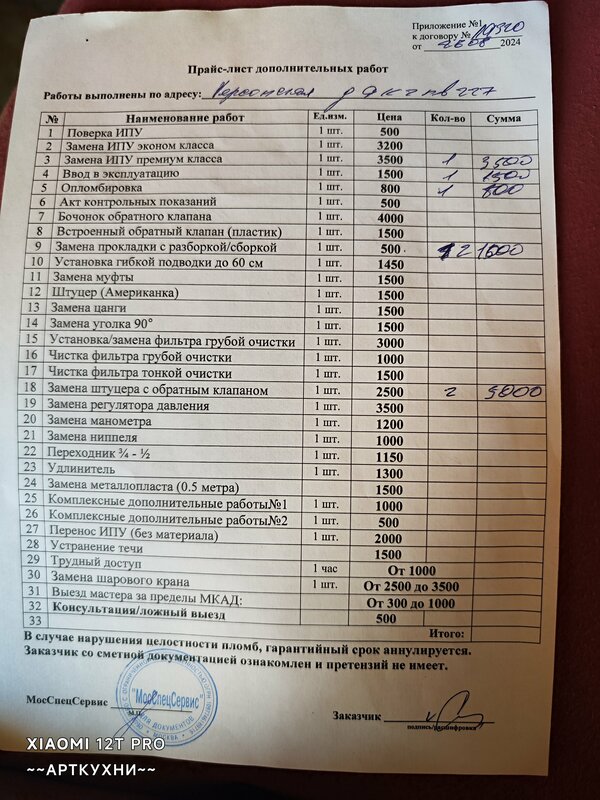 Приложение №1
к договору № 19320
от 26 08 2024
Прайс-лист дополнительных работ
Работы выполнены по адресу: Херсонская
№ Наименование работ Ед.изм. Цена Кол-во Сумма
1 Поверка ИПУ 1 шт. 500
2 Замена ИПУ эконом класса 1 шт. 3200
3 Замена ИПУ премиум класса 1 шт. 3500 1 3500
4 Ввод в эксплуатацию 1 шт. 1500 1 1500
5 Опломбировка 1 шт. 800 1 800
6 Акт контрольных показаний 1 шт. 500
7 Бочонок обратного клапана 1 шт. 4000
8 Встроенный обратный клапан (пластик) 1 шт. 1500
9 Замена прокладки с разборкой/сборкой 1 шт. 500 2 1000
10 Установка гибкой подводки до 60 см 1 шт. 1450
11 Замена муфты 1 шт. 1500
12 Штуцер (Американка) 1 шт. 1500
13 Замена цанги 1 шт. 1500
14 Замена уголка 90° 1 шт. 1500
15 Установка/замена фильтра грубой очистки 1 шт. 3000
16 Чистка фильтра грубой очистки 1 шт. 1000
17 Чистка фильтра тонкой очистки 1 шт. 1500
18 Замена штуцера с обратным клапаном 1 шт. 2500 2 5000
19 Замена регулятора давления 1 шт. 3500
20 Замена манометра 1 шт. 1200
21 Замена ниппеля 1 шт. 1000
22 Переходник ¾ - ½ 1 шт. 1150
23 Удлинитель 1 шт. 1300
24 Замена металлопласта (0.5 метра) 1500
25 Комплексные дополнительные работы№1 1 шт. 1000
26 Комплексные дополнительные работы№2 1 шт. 500
27 Перенос ИПУ (без материала) 1 шт. 2000
28 Устранение течи 1500
29 Трудный доступ 1 час От 1000
30 Замена шарового крана 1 шт. От 2500 до 3500
31 Выезд мастера за пределы МКАД: От 300 до 1000
32 Консультация/ложный выезд 500
33 Итого:
В случае нарушения целостности пломб, гарантийный срок аннулируется.
Заказчик со сметной документацией ознакомлен и претензий не имеет.
МосСпецСервис
М.П.
"МосСпецСервис"
ДЛЯ ДОКУМЕНТОВ
МОСКВА
Заказчик
подпись/расшифровка
XIAOMI 12T PRO
~~АРТКУХНИ~~